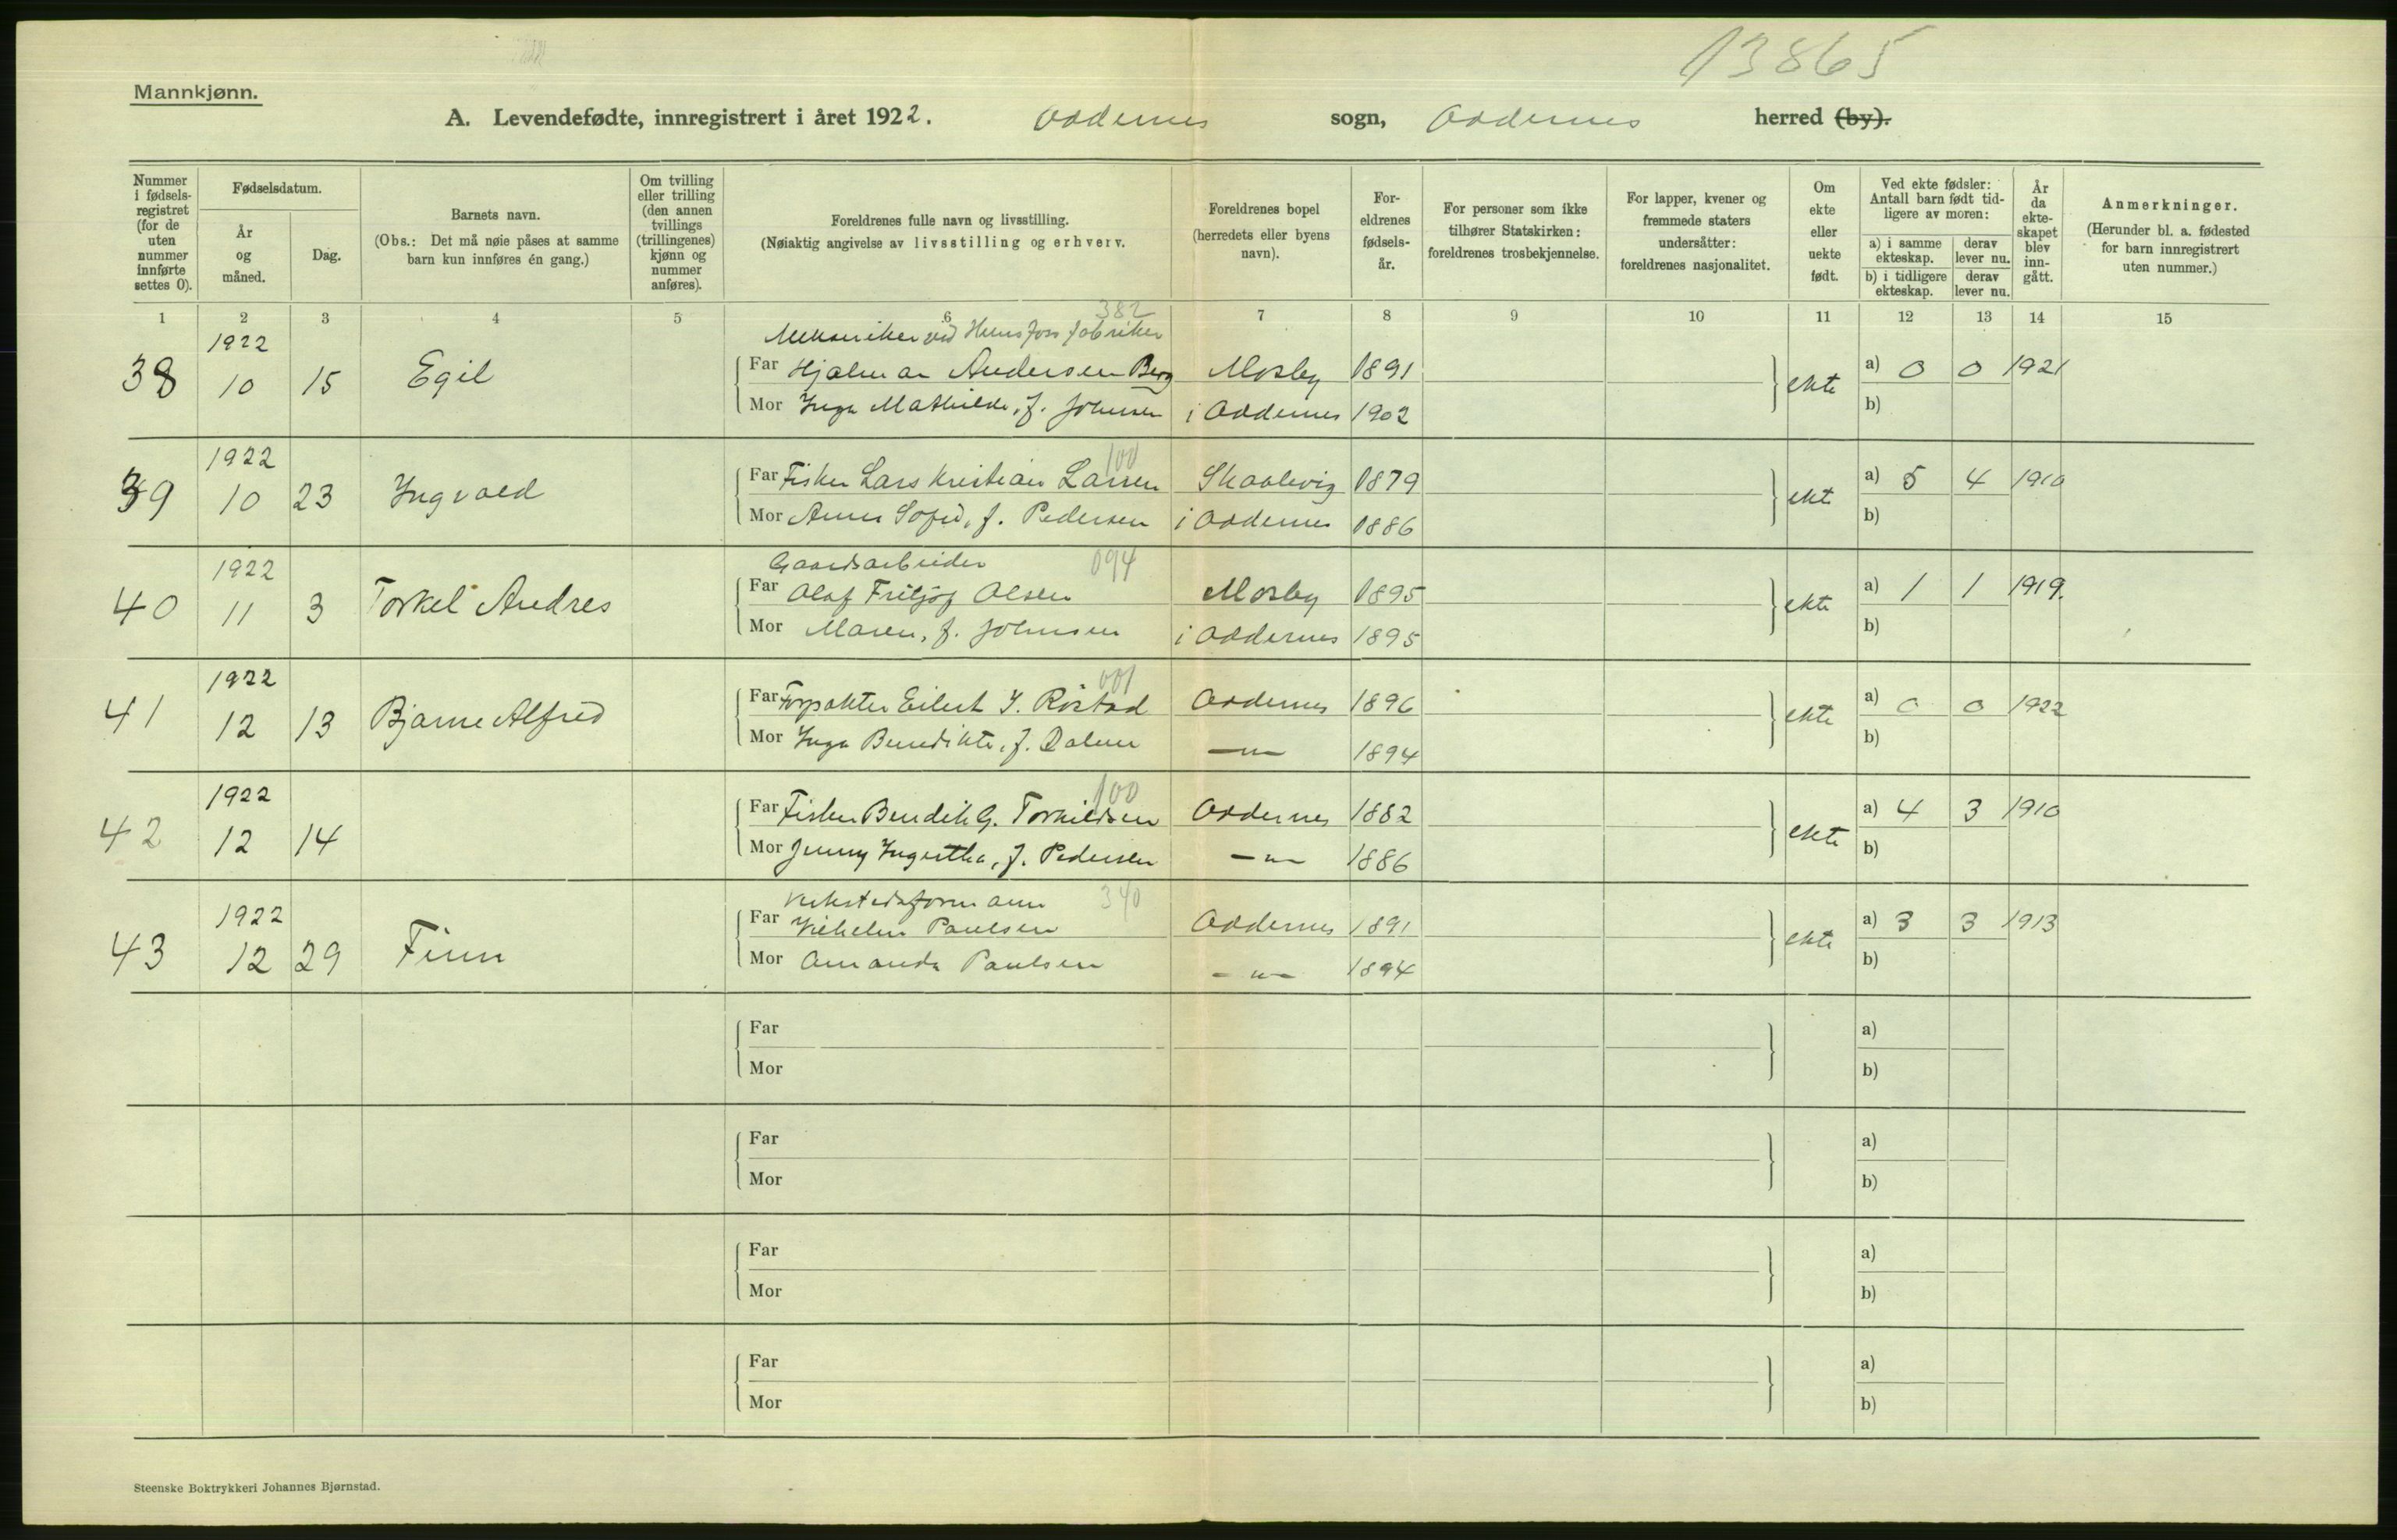 13865
Mannkjønn.
A. Levendefødte, innregistrert i året 1922. Oddernes sogn, Oddernes herred (by).
Nummer i fødsels-registret (for de uten nummer innførte settes 0).
Fødselsdatum.
År og måned.
Dag.
Barnets navn.
(Obs.: Det må nøie påses at samme barn kun innføres én gang.)
Om tvilling eller trilling (den annen tvillings (trillingenes) kjønn og nummer anføres).
Foreldrenes fulle navn og livsstilling.
(Nøiaktig angivelse av livsstilling og erhverv.
Foreldrenes bopel (herredets eller byens navn).
For-eldrenes fødsels-år.
For personer som ikke tilhører Statskirken: foreldrenes trosbekjennelse.
For lapper, kvener og fremmede staters undersåtter: foreldrenes nasjonalitet.
Om ekte eller uekte født.
Ved ekte fødsler: Antall barn født tid-ligere av moren:
a) i samme ekteskap. derav lever nu.
b) i tidligere ekteskap. derav lever nu.
År da ekte-skapet blev inn-gått.
Anmerkninger.
(Herunder bl. a. fødested for barn innregistrert uten nummer.)
1 2 3 4 5 6 7 8 9 10 11 12 13 14 15
382
1922 Mekaniker ved Hunsfoss fabriker
38 10 15 Egil Far Hjalmar Andersen Berg Mosby 1891 ekte a) 0 0 1921
Mor Inga Mathilde, f. Johnsen i Oddernes 1902 b)
1922 100
39 10 23 Ingvald Far Fisker Lars Kristian Larsen Skaalevig 1879 ekte a) 5 4 1910
Mor Anna Sofie, f. Pedersen i Oddernes 1886 b)
1922 Gaardsarbeider 094
40 11 3 Torkel Andres Far Olaf Fritjof Olsen Mosby 1895 ekte a) 1 1 1919.
Mor Maren, f. Johnsen i Oddernes 1895 b)
1922 001
41 12 13 Bjarne Alfred Far Forpakter Eilert I. Röstad Oddernes 1896 ekte a) 0 0 1922
Mor Inga Benedikte, f. Dalene —"— 1894 b)
1922 100
42 12 14 Far Fisker Bendik G. Torkildsen Oddernes 1882 ekte a) 4 3 1910
Mor Jenny Ingertha, f. Pedersen —"— 1886 b)
1922 Verkstedsformann 340
43 12 29 Finn Far Vilhelm Paulsen Oddernes 1891 ekte a) 3 3 1913
Mor Amanda Paulsen —"— 1894 b)
Far a)
Mor b)
Far a)
Mor b)
Far a)
Mor b)
Far a)
Mor b)
Steenske Boktrykkeri Johannes Bjørnstad.